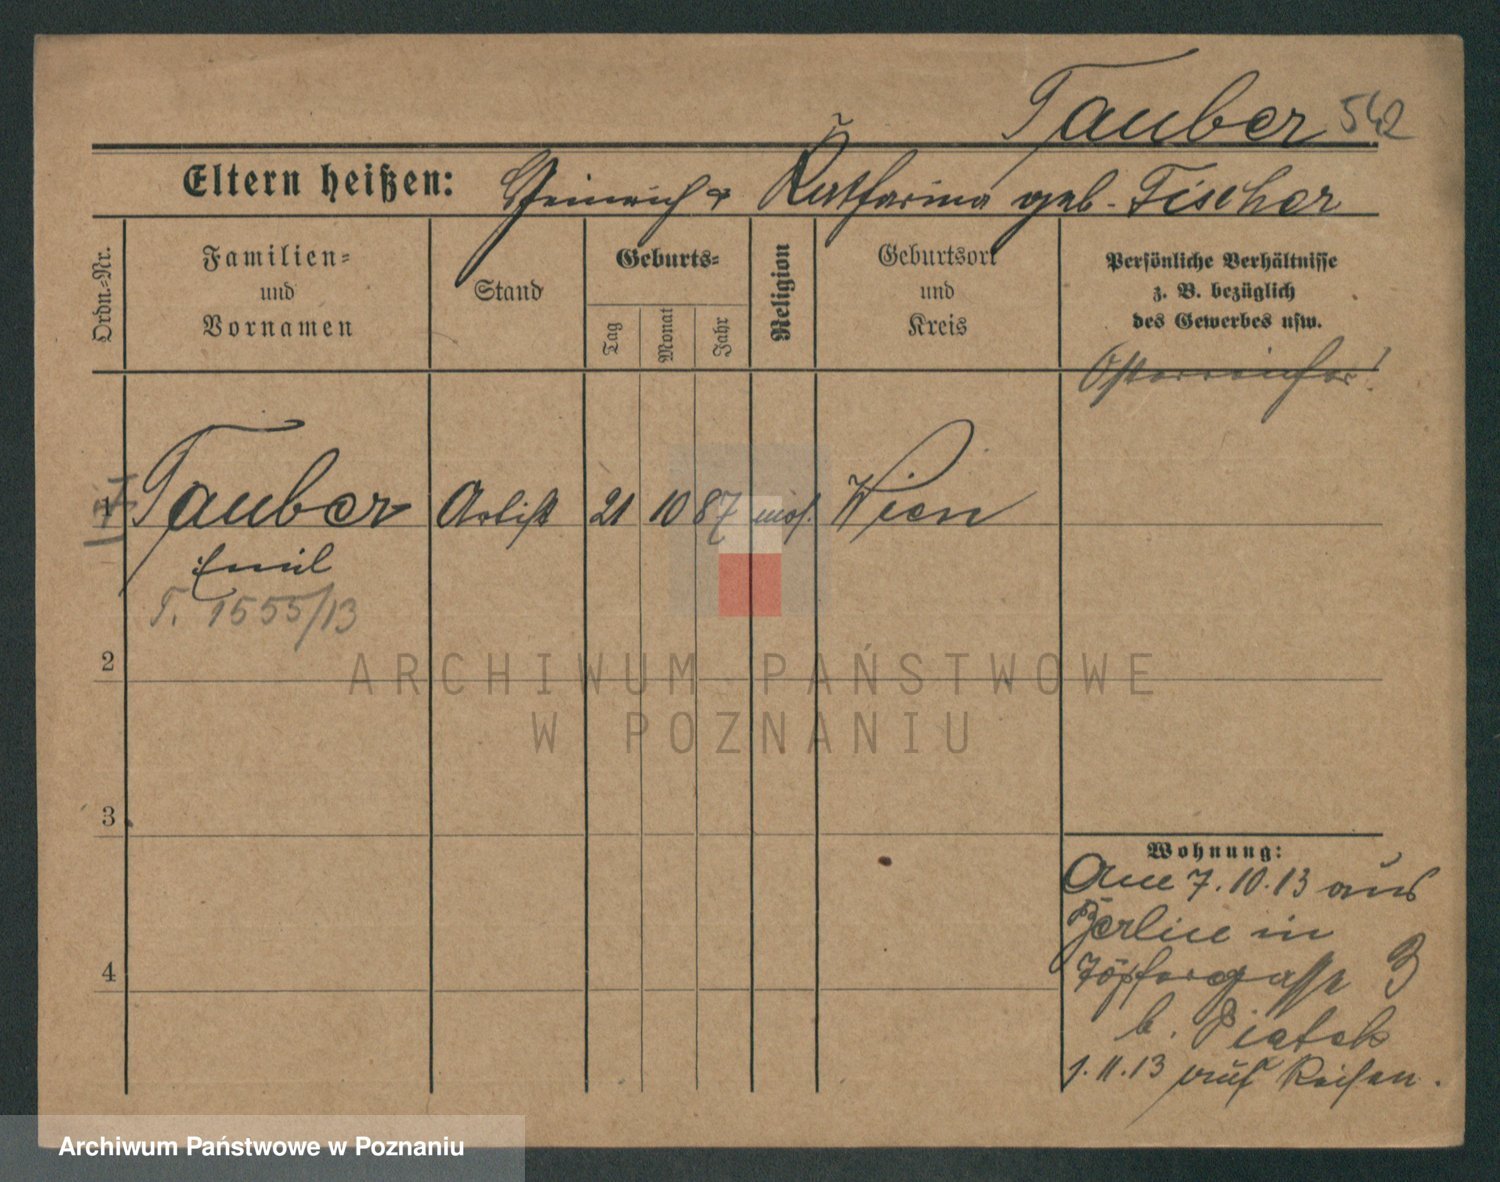 Tauber 542
Eltern heißen: Heinrich & Katharina geb. Fischer
Ordn.=Nr.
Familien=
und
Vornamen
Stand
Geburts=
Tag
Monat
Jahr
Religion
Geburtsort
und
Kreis
Persönliche Verhältnisse
z. B. bezüglich
des Gewerbes usw.
Österreicher!
1 Tauber Artist 21 10 87 mos. Wien
Emil
T. 1555/13
2
3
4
Wohnung:
Am 7.10.13 aus
Berlin in
Töpfergasse 3
b. Piatek
1.11.13 auf Reisen.
ARCHIWUM PAŃSTWOWE
W POZNANIU
Archiwum Państwowe w Poznaniu